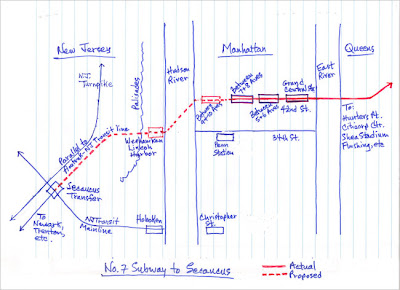 New Jersey
Hudson
River
Manhattan
East
River
Queens
NJ
Turnpike
Palisades
Parallel to
NJ Transit line
Weehawken
Lincoln
Harbor
Between
Between
7+8 Aves
Between
5+6 Aves
Grand
Central Sta.
42nd St.
34th St.
Penn
Station
To:
Hunters Pt.
Citicorp Ctr.
Shea Stadium
Flushing, etc
Secaucus
Transfer
To
Newark,
Trenton,
etc.
NJ Transit
Mainline
Hoboken
Christopher
St.
No. 7 Subway to Secaucus
Actual
Proposed